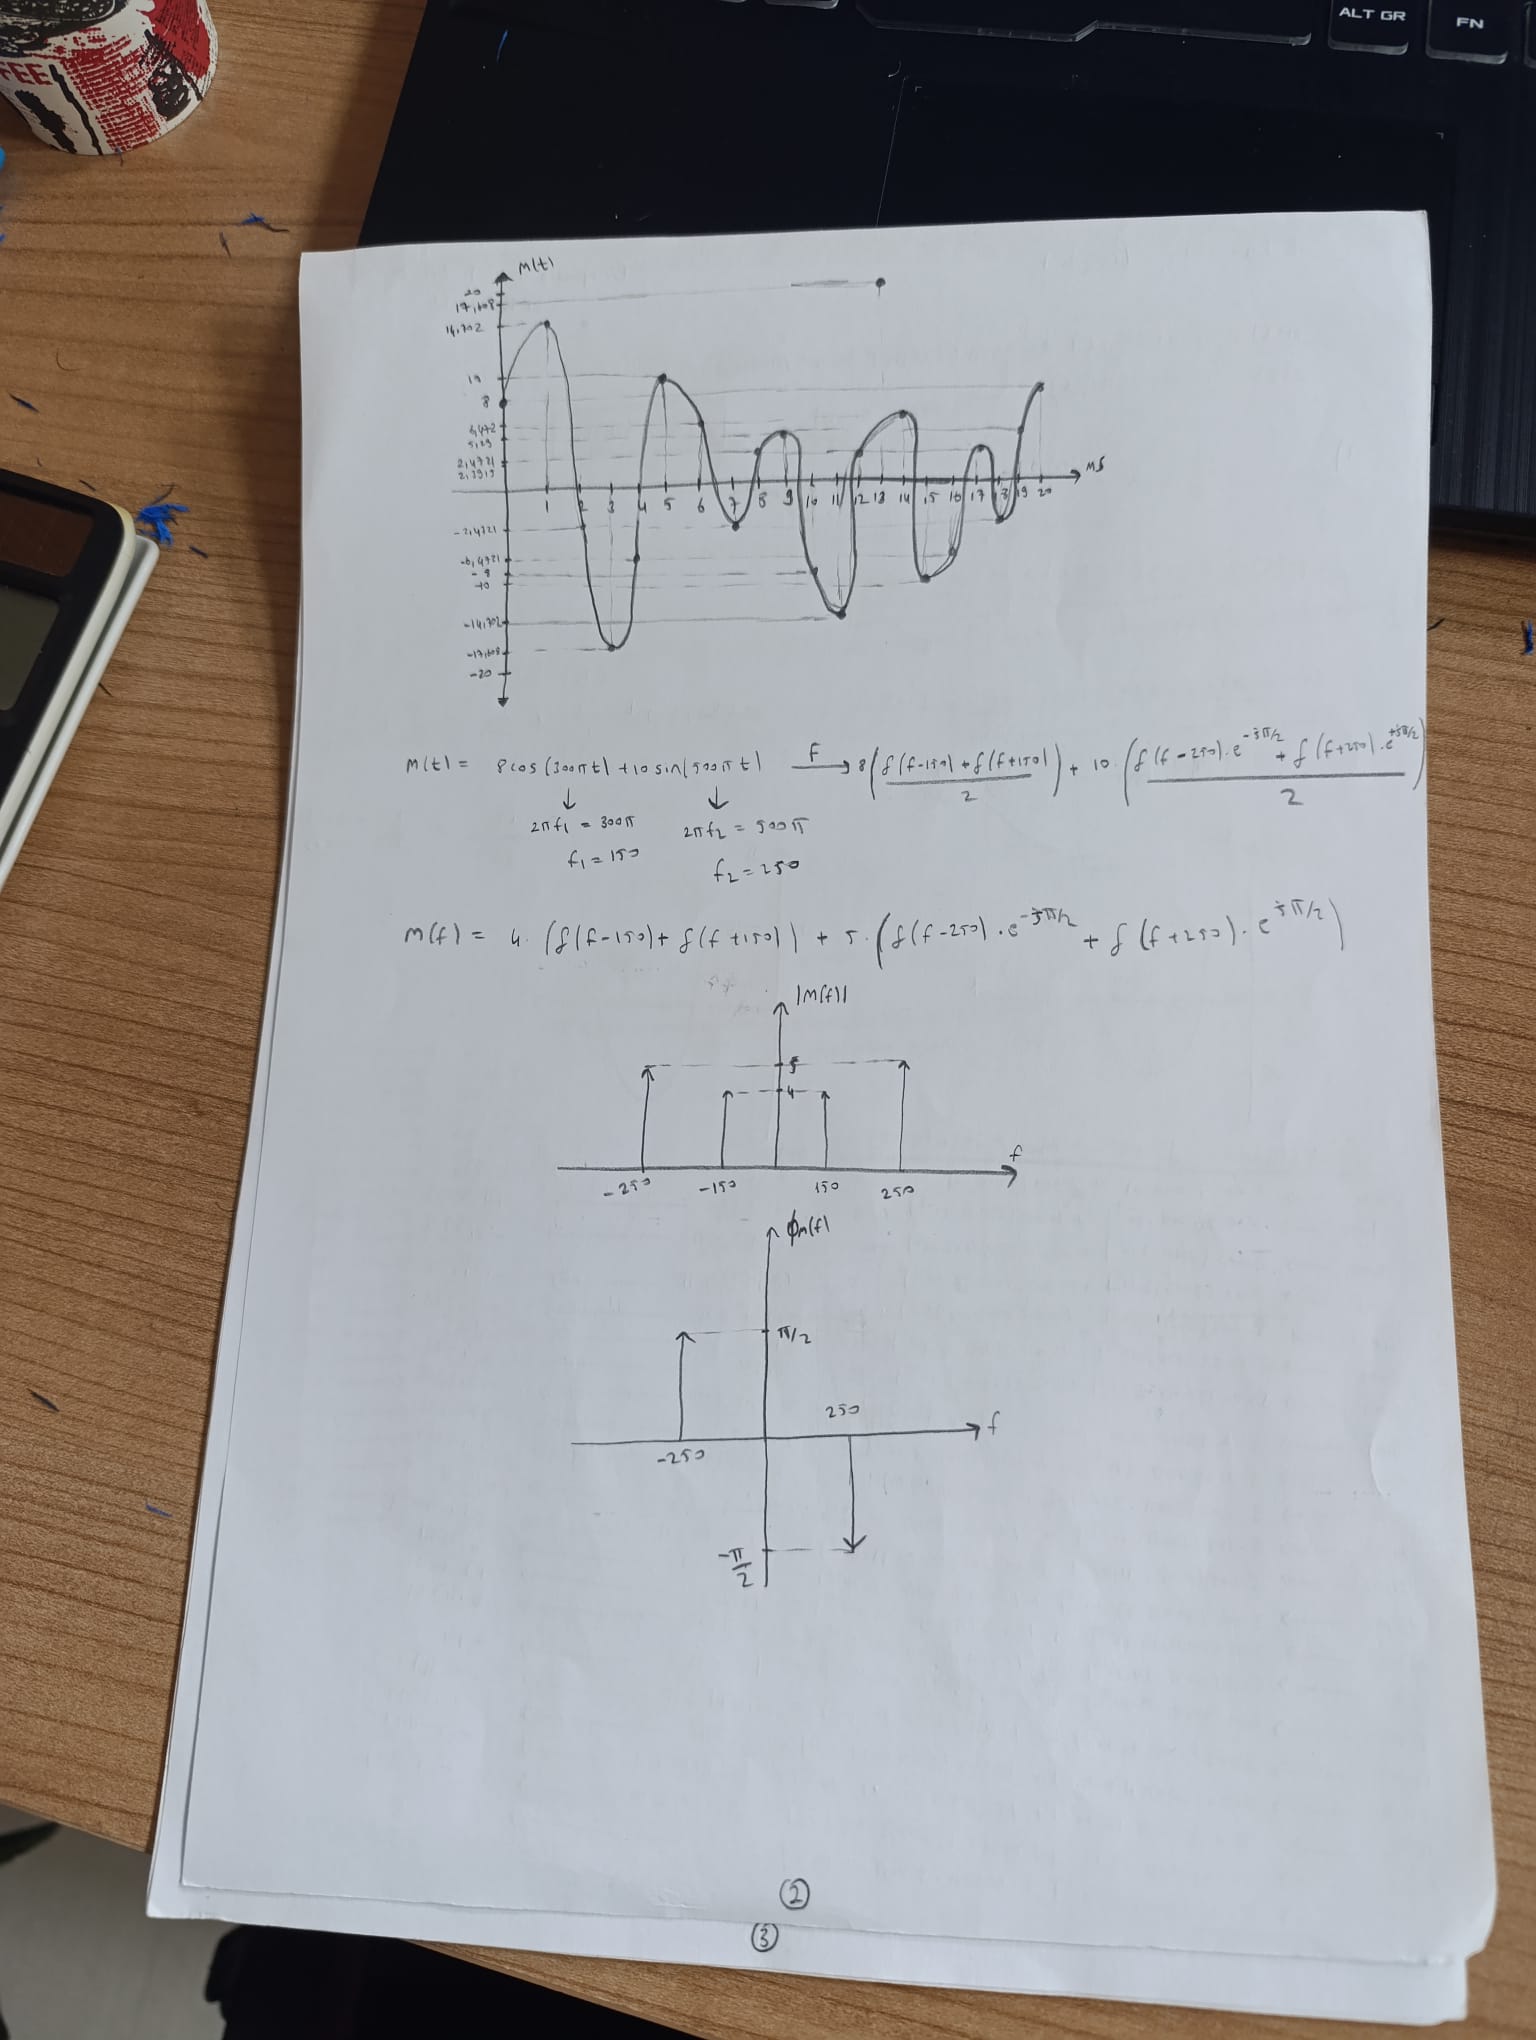 ALT GR
FN
FEE
M(t)
20
17,608
14,702
10
8
6,472
5,29
2,4721
2,3919
-2,4721
-6,4721
-8
-10
-14,702
-17,608
-20
1 2 3 4 5 6 7 8 9 10 11 12 13 14 15 16 17 18 19 20
ms
M(t) = 8cos(300πt) + 10 sin(500πt) F→ 8(f(f-150)+f(f+150)/2) + 10 (f(f-250).e^-jπ/2 + f(f+250).e^+jπ/2 / 2)
↓ ↓
2πf₁ = 300π 2πf₂ = 500π
f₁ = 150 f₂ = 250
M(f) = 4. (f(f-150)+f(f+150)) + 5. (f(f-250).e^-jπ/2 + f(f+250).e^jπ/2)
|M(f)|
5
4
f
-250 -150 150 250
ϕm(f)
π/2
250
f
-250
-π/2
②
③